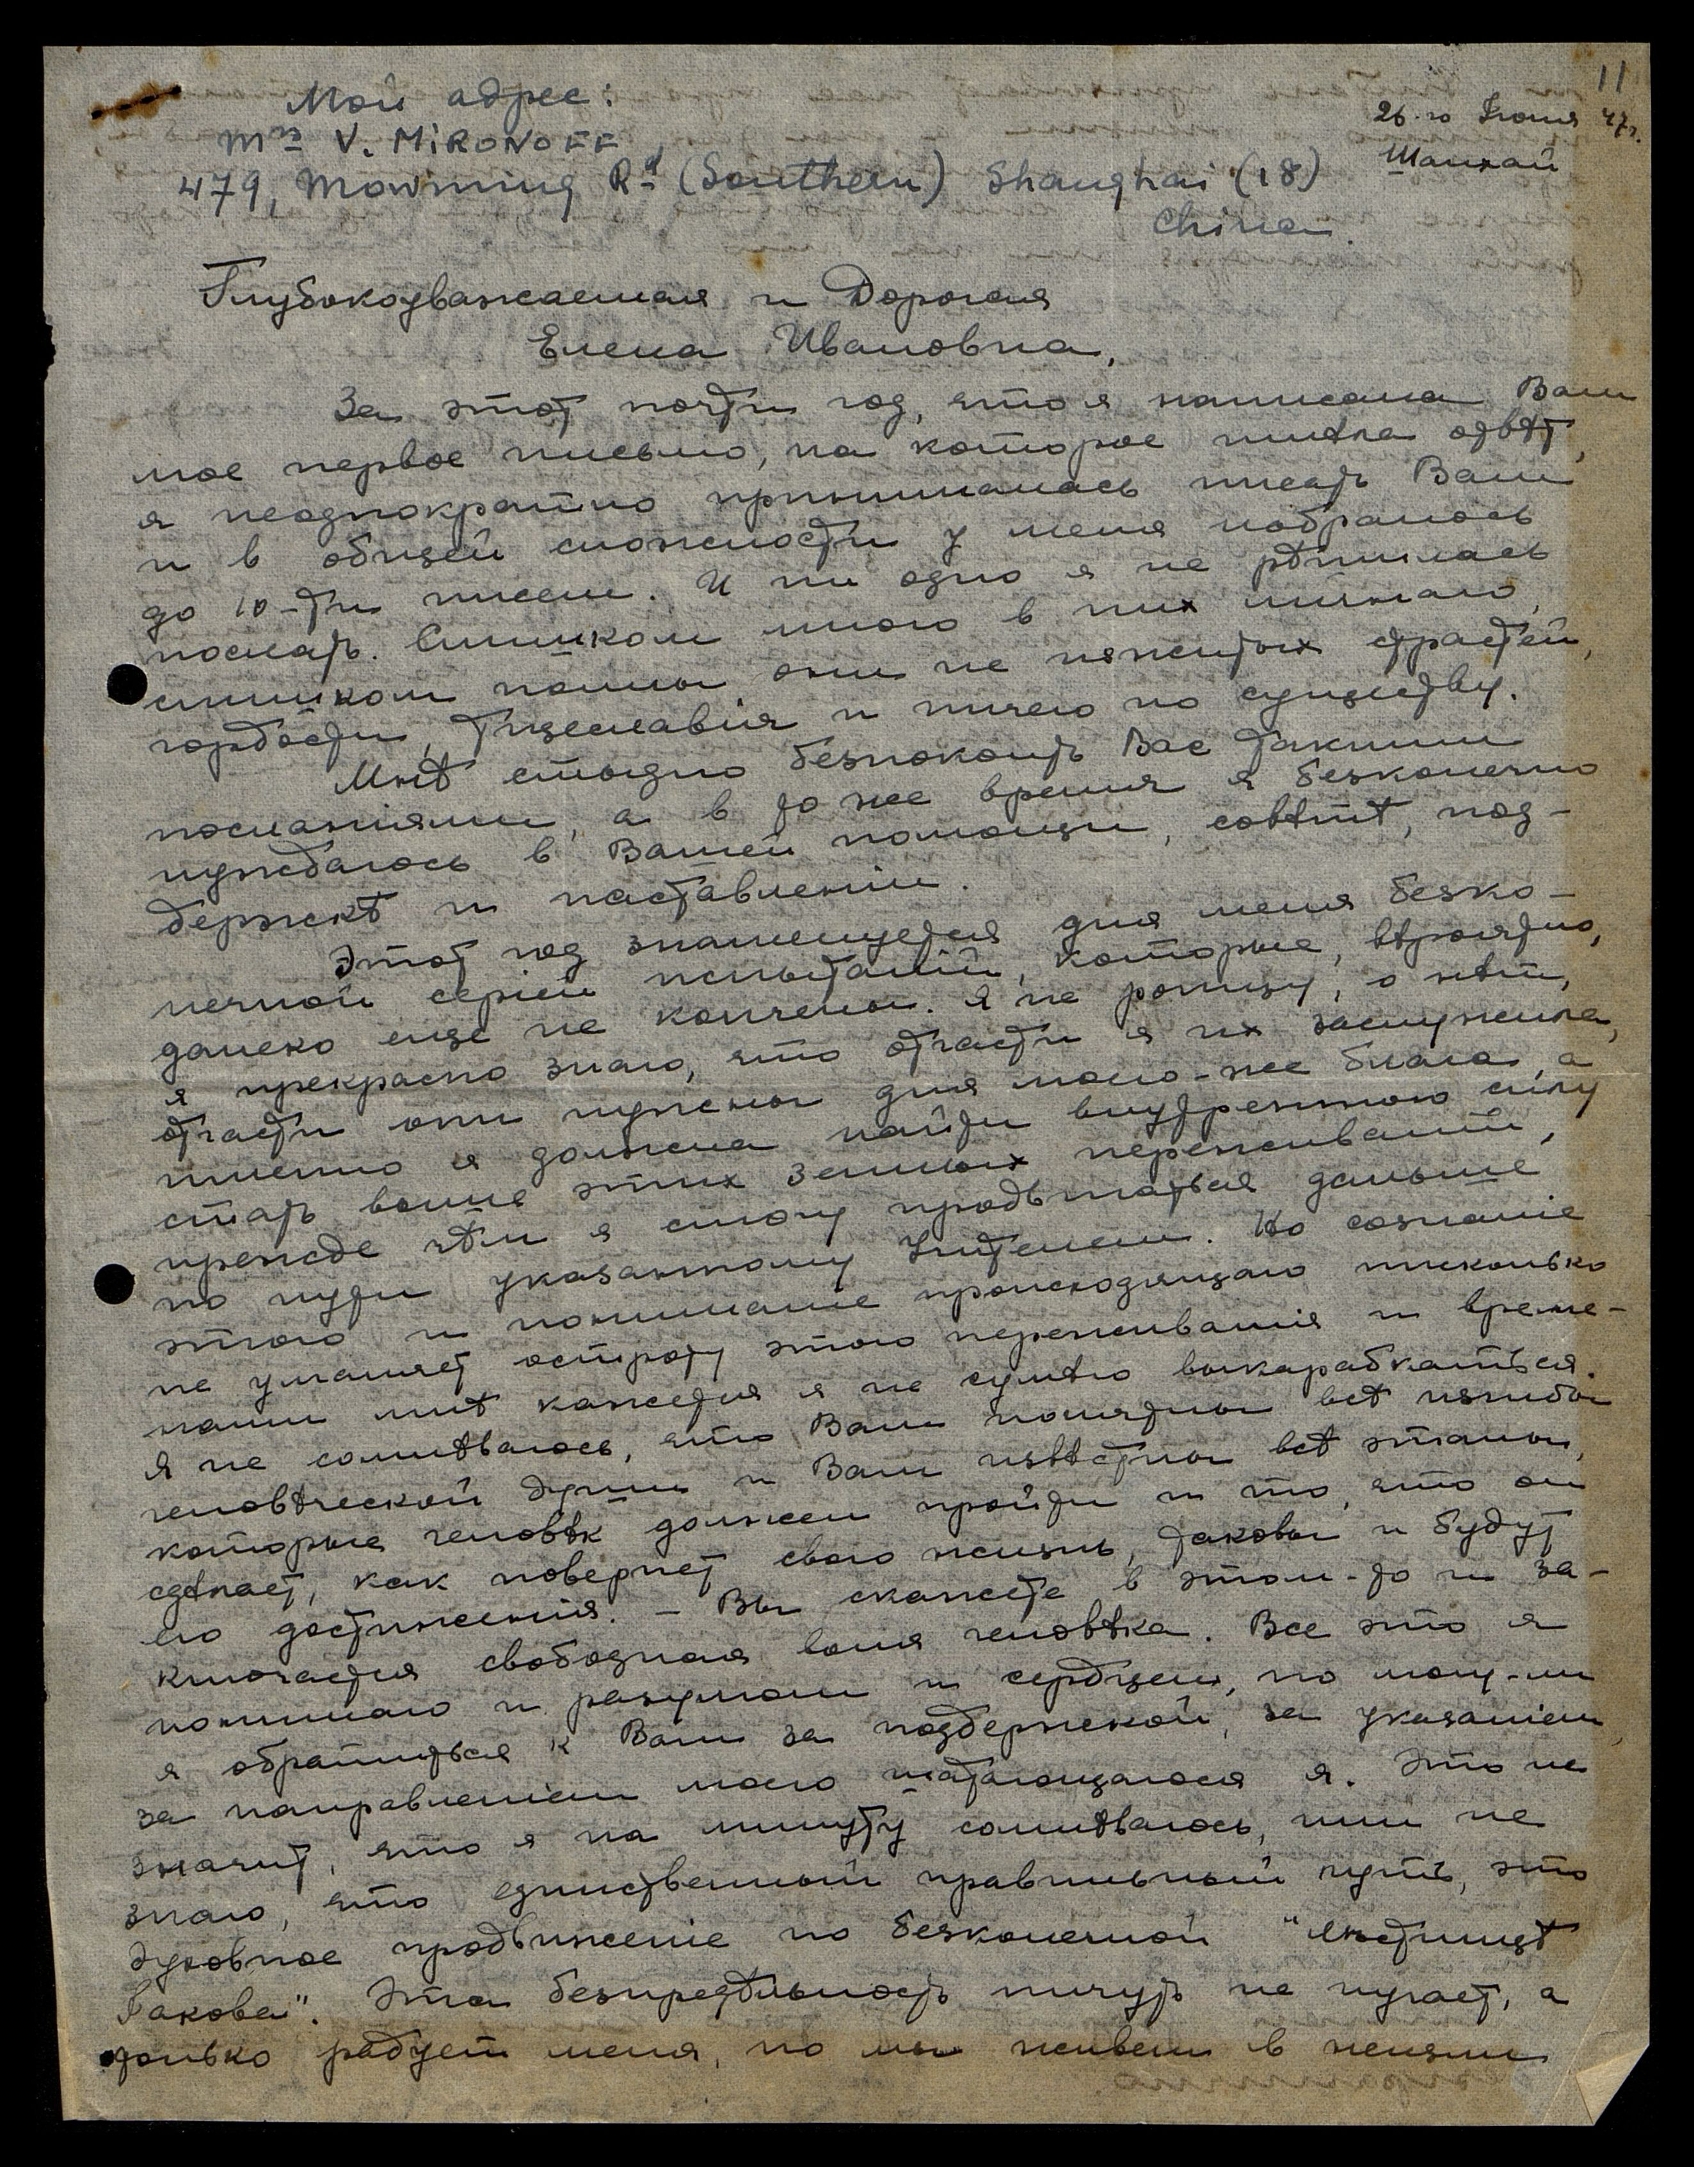 11
Мой адрес:
26-го Июня 47г.
Mrs V. MIRONOFF
Шанхай
479, Mowming Rd (Southern) Shanghai (18)
China.
Глубокоуважаемая и Дорогая
Елена Ивановна,
За этот почти год, что я написала Вам
мое первое письмо, на которое имѣла отвѣт,
я неоднократно принималась писать Вам
и в общей сложности у меня набралось
до 10-ти писем. И ни одно я не рѣшилась
послать. Слишком много в них личнаго,
слишком полны они не изжитых страстей,
гордости, тщеславія и ничего по существу.
Мнѣ стыдно безпокоить Вас такими
посланіями, а в то же время я безконечно
нуждаюсь в Вашей помощи, совѣтѣ, под-
держкѣ и наставленіи.
Этот год знаменуется для меня безко-
нечной серіей испытаній, которые, вѣроятно,
далеко еще не кончены. Я не ропщу, о нѣт,
я прекрасно знаю, что отчасти я их заслужила,
отчасти они нужны для моего-же блага, а
именно я должна найти внутреннюю силу
стать выше этих земных переживаній,
прежде чѣм я смогу продвигаться дальше
по пути указанному Учителем. Но сознаніе
этого и пониманіе происходящаго нисколько
не умаляет остроту этого переживанія и време-
нами мнѣ кажется я не сумѣю выкарабкаться.
Я не сомнѣваюсь, что Вам понятны всѣ изгибы
человѣческой души и Вам извѣстны всѣ этапы,
которые человѣк должен пройти и то, что он
сдѣлает, как повернет свою жизнь, таковы и будут
его достиженія. – Вы скажете в этом-то и за-
ключается свободная воля человѣка. Все это я
понимаю и разумом и сердцем, но могу-ли
я обратиться к Вам за поддержкой, за указаніем,
за направленіем моего шатающагося я. Это не
значит, что я на минуту сомнѣваюсь, или не
знаю, что единственный правильный путь, это
духовное продвиженіе по безконечной "Лѣстницѣ
Іакова". Эта безпредѣльность ничуть не пугает, а
только радует меня, но мы живем в жизни